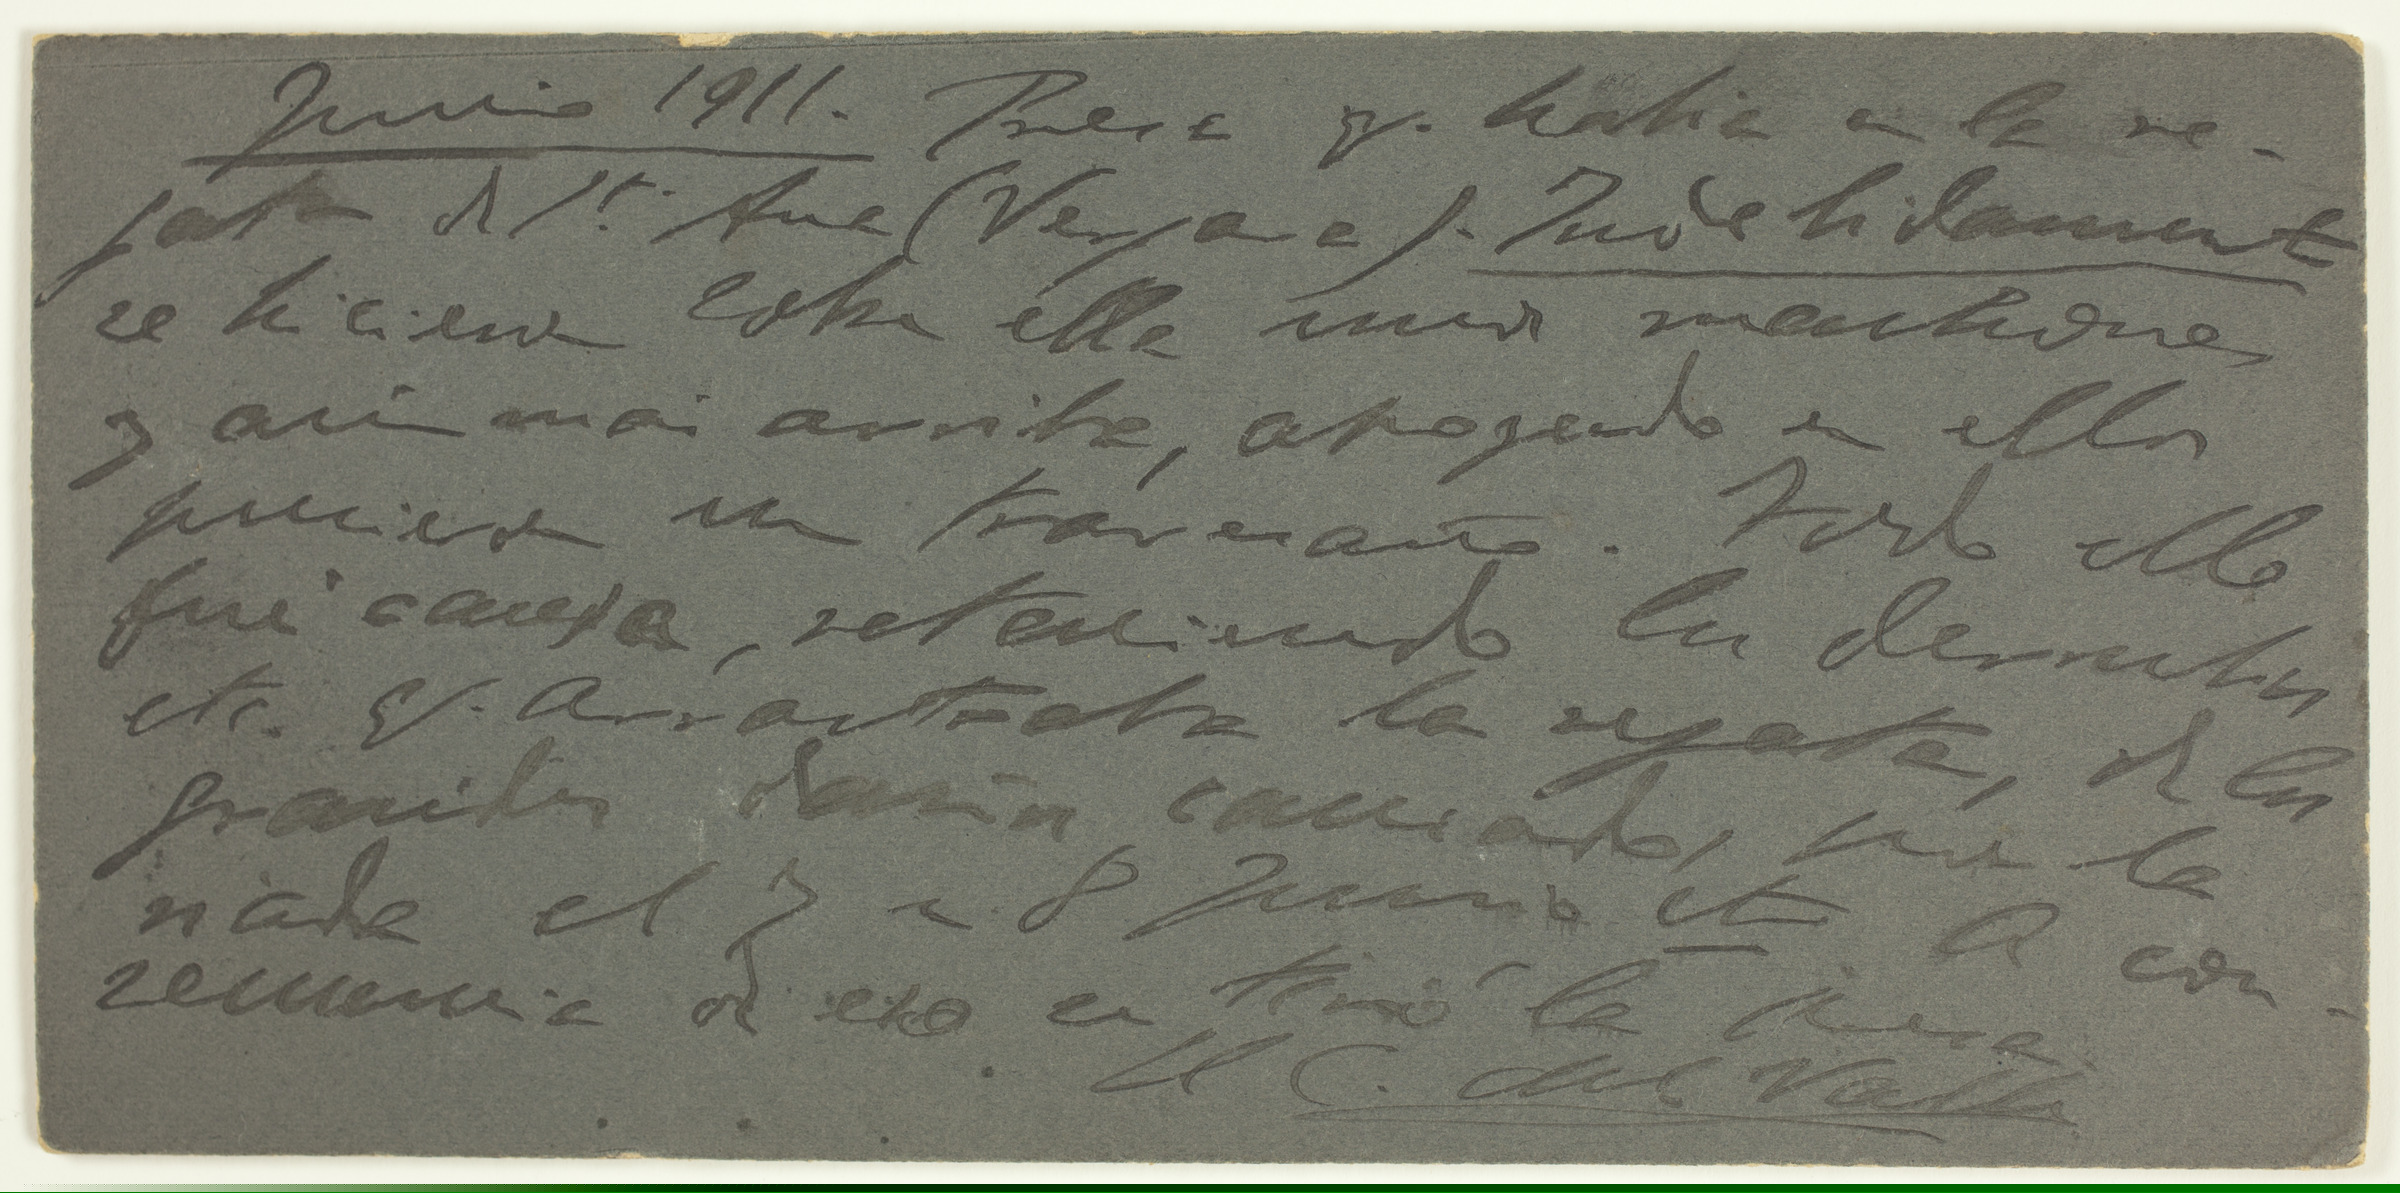 Junio 1911. Presa q. había en la re-
gata de Sta. Ana (Vergara). Indebidament
se hicieron sobre ella unos machones
y aún más arriba, apoyando en ellos
pusieron un travesaño. Todo ello
fué causa, reteniendo los derrubios
etc. q. arrastraba la regata, de los
grandes daños causados por la
riada el 7 u 8 Junio etc. A con-
secuencia de eso se tiró la presa.
El C. del Valle